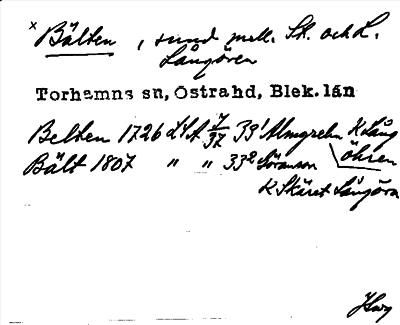 × Bälten, sund mell. St. och L.
Långören
Torhamns sn, Östrahd, Blek. län
Belten 1726 LSA 7/37 33¹ Almgrehn K Lång
öhren
Bält 1807 " " 33² Söranson
K Skäret Långörn